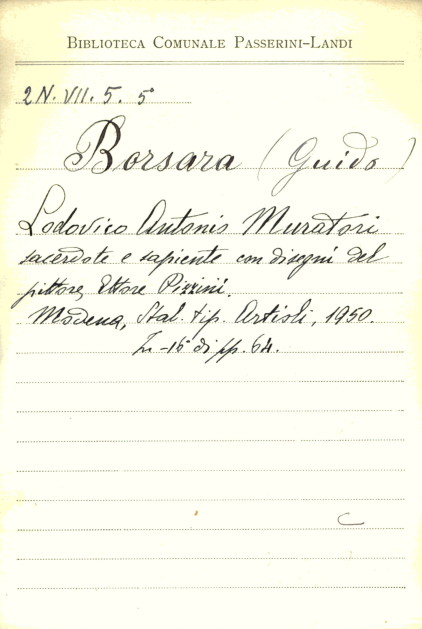 BIBLIOTECA COMUNALE PASSERINI-LANDI
2 N. VII. 5. 5°
Borsara (Guido)
Lodovico Antonio Muratori
sacerdote e sapiente con disegni del
pittore, Ettore Pizzini.
Modena, Stal. tip. Artioli, 1950.
In-16° di pp. 64.
C